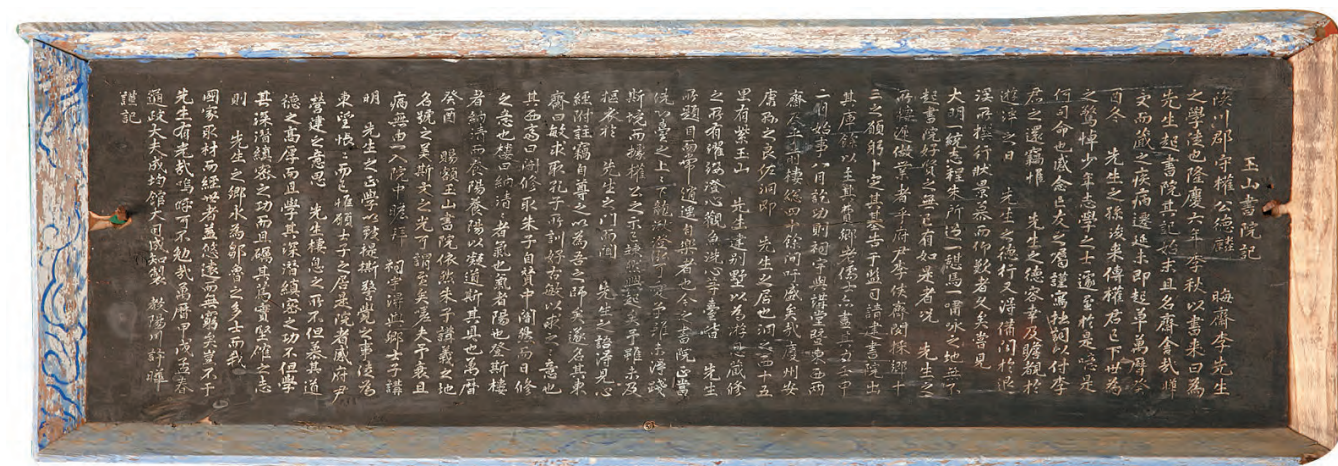 玉山書院記
陜川郡守權公德麟 晦齋李先生
之學法也隆慶六年季秋以書来曰為
先生起書院其記始末且名齋舍哉曄
受而藏之疾病遷延未即起草萬曆癸
酉冬 先生之孫浚来傳權君已下世為
之驚悼少年志學之士遽至於是噫是
何司命也感念存亡之屬謹寓拙詞以付李
君之還竊惟 先生之德容幸及瞻覿於
遊泮之日 先生之德行又得備聞於退
溪所撰行狀景慕而仰歎者久矣嘗見
大明一統志程朱所過一 焉一嘯咏之地無不
起書院好賢之無已有如是者况 先生之
所 遲 業者乎府尹李侯齋閔 鄉十
三之願躬卜之其基告于監司請建書院出
其庫餘以主其費鄉老儒士亦盡
二月始事八月訖功則祠宇與講堂曁東西兩
齋 樓総四十餘間吁盛矣哉慶州安
康縣之良佐洞即 先生之居也洞之西十五
里有紫玉山 先生建別墅以為游息藏修
之所有濯纓澄心觀魚洗心等臺皆 先生
所題目而常逍遥自樂者也今之書院正當
洗心臺之上下龍湫
斯境而據權公之示 然興起 乎雖未及
摳衣於 先生之門而聞 先生之話得見心
經附註竊自尊之以為吾之師矣遂名其東
齋曰敏求取孔子所訓好古敏以求之之意也
其西齋曰闇修取朱子自贊中闇然而日修
之意也樓曰納清清者氣也氣者陽也登斯樓
者納清而養陽養陽以凝道斯其具也萬曆
癸酉 賜額玉山書院依然朱子講義之地
名號之美斯文之光可謂至矣爰夫予哉且
病無由一入院中瞻拜 祠宇得與鄉士子講
明 先生之正學以致提撕警覺之事徒為
東望悵悵而已惟願士子之居是院者感府尹
營建之意思 先生棲息之所不但慕其道
德之高厚而且學其深潜縝密之功不但學
其深潜縝密之功而且礪其篤實堅確之志
則 先生之鄉永為鄒魯之多士而我
國家取材而經世者益悠遠而無窮矣豈不于
先生有光哉嗚呼可不勉哉萬曆甲戌孟春
通政大夫成均館大司成知製 教陽川許曄
謹記